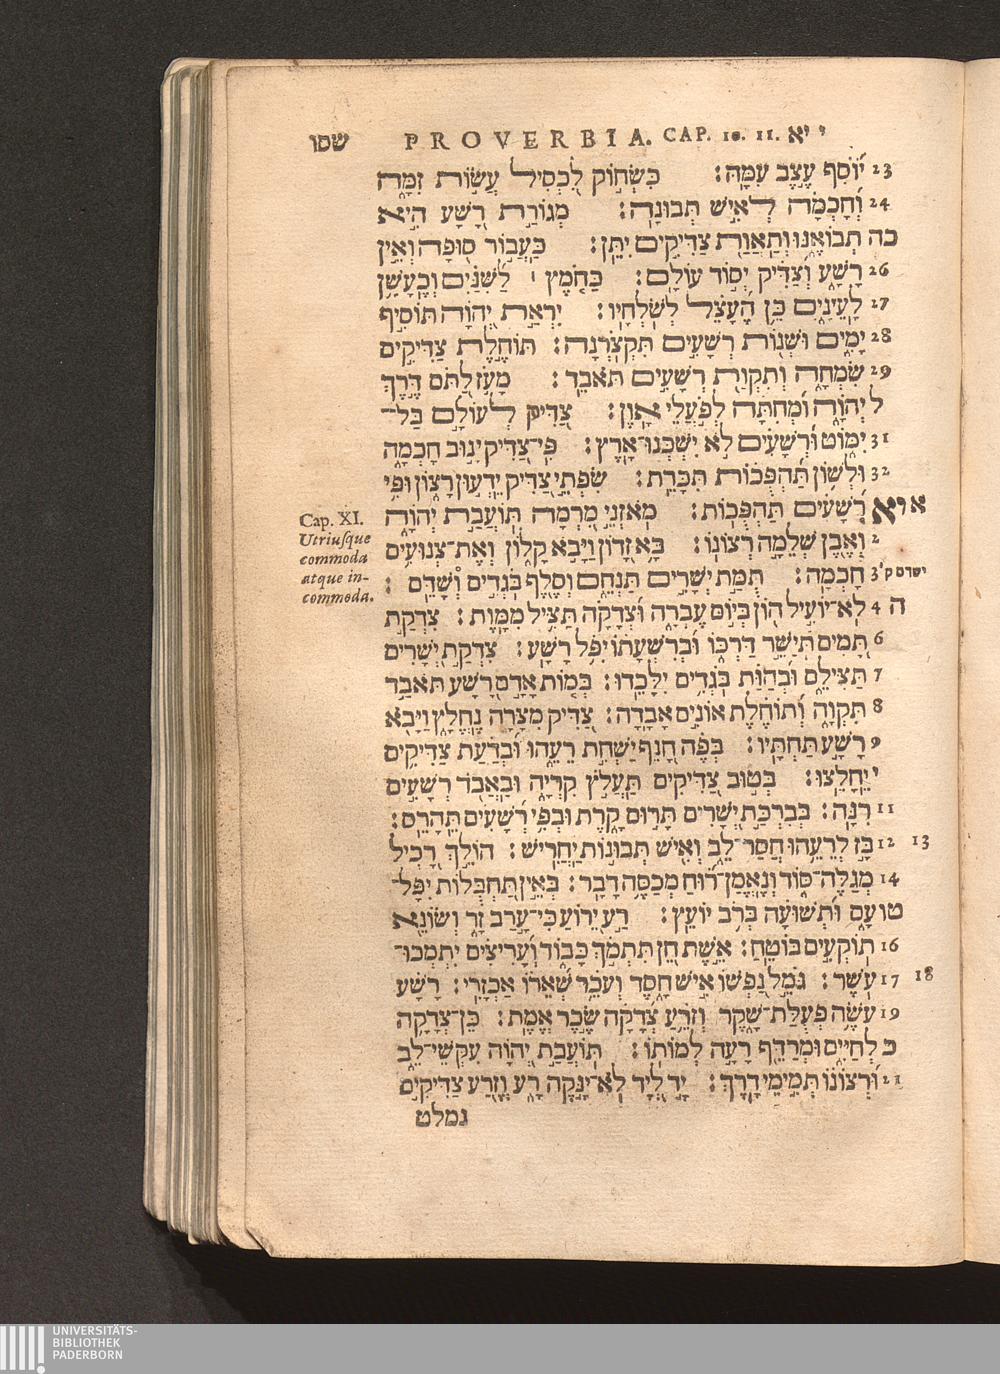 שסו PROVERBIA. CAP. 10. 11. י יא
23 יוֹסִף עֶצֶב עִמָּהּ׃ כִּשְׂחוֹק לִכְסִיל עֲשׂוֹת זִמָּה
24 וְחָכְמָה לְאִישׁ תְּבוּנָה׃ מְגוֹרַת רָשָׁע הִיא
כה תְבוֹאֶנּוּ וְתַאֲוַת צַדִּיקִים יִתֵּן׃ כַּעֲבוֹר סוּפָה וְאֵין
26 רָשָׁע וְצַדִּיק יְסוֹד עוֹלָם׃ כַּחֹמֶץ ׀ לַשִּׁנַּיִם וְכֶעָשָׁן
27 לָעֵינָיִם כֵּן הֶעָצֵל לְשֹׁלְחָיו׃ יִרְאַת יְהוָה תּוֹסִיף
28 יָמִים וּשְׁנוֹת רְשָׁעִים תִּקְצֹרְנָה׃ תּוֹחֶלֶת צַדִּיקִים
29 שִׂמְחָה וְתִקְוַת רְשָׁעִים תֹּאבֵד׃ מָעוֹז לַתֹּם דֶּרֶךְ
ל יְהוָה וּמְחִתָּה לְפֹעֲלֵי אָוֶן׃ צַדִּיק לְעוֹלָם בַּל־
31 יִמּוֹט וּרְשָׁעִים לֹא יִשְׁכְּנוּ־אָרֶץ׃ פִּי־צַדִּיק יָנוּב חָכְמָה
32 וּלְשׁוֹן תַּהְפֻּכוֹת תִּכָּרֵת׃ שִׂפְתֵי צַדִּיק יֵדְעוּן רָצוֹן וּפִי
א יא רְשָׁעִים תַּהְפֻּכוֹת׃ מֹאזְנֵי מִרְמָה תּוֹעֲבַת יְהוָה
Cap. XI.
Utriusque
commoda
atque in-
commoda.
2 וְאֶבֶן שְׁלֵמָה רְצוֹנוֹ׃ בָּא זָדוֹן וַיָּבֹא קָלוֹן וְאֶת־צְנוּעִים
ישדם ק׳ 3 חָכְמָה׃ תֻּמַּת יְשָׁרִים תַּנְחֵם וְסֶלֶף בֹּגְדִים וְשָׁדֵּם׃
ה 4 לֹא־יוֹעִיל הוֹן בְּיוֹם עֶבְרָה וּצְדָקָה תַּצִּיל מִמָּוֶת׃ צִדְקַת
6 תָּמִים תְּיַשֵּׁר דַּרְכּוֹ וּבְרִשְׁעָתוֹ יִפֹּל רָשָׁע׃ צִדְקַת יְשָׁרִים
7 תַּצִּילֵם וּבְהַוַּת בֹּגְדִים יִלָּכֵדוּ׃ בְּמוֹת אָדָם רָשָׁע תֹּאבַד
8 תִּקְוָה וְתוֹחֶלֶת אוֹנִים אָבָדָה׃ צַדִּיק מִצָּרָה נֶחֱלָץ וַיָּבֹא
9 רָשָׁע תַּחְתָּיו׃ בְּפֶה חָנֵף יַשְׁחִת רֵעֵהוּ וּבְדַעַת צַדִּיקִים
י יֵחָלֵצוּ׃ בְּטוּב צַדִּיקִים תַּעֲלֹץ קִרְיָה וּבַאֲבֹד רְשָׁעִים
11 רִנָּה׃ בְּבִרְכַּת יְשָׁרִים תָּרוּם קָרֶת וּבְפִי רְשָׁעִים תֵּהָרֵס׃
13 12 בָּז לְרֵעֵהוּ חֲסַר־לֵב וְאִישׁ תְּבוּנוֹת יַחֲרִישׁ׃ הוֹלֵךְ רָכִיל
14 מְגַלֶּה־סּוֹד וְנֶאֱמַן־רוּחַ מְכַסֶּה דָבָר׃ בְּאֵין תַּחְבֻּלוֹת יִפָּל־
טו עָם וּתְשׁוּעָה בְּרֹב יוֹעֵץ׃ רַע יֵרוֹעַ כִּי־עָרַב זָר וְשׂוֹנֵא
16 תוֹקְעִים בּוֹטֵחַ׃ אֵשֶׁת חֵן תִּתְמֹךְ כָּבוֹד וְעָרִיצִים יִתְמְכוּ־
18 17 עֹשֶׁר׃ גֹּמֵל נַפְשׁוֹ אִישׁ חָסֶד וְעֹכֵר שְׁאֵרוֹ אַכְזָרִי׃ רָשָׁע
19 עֹשֶׂה פְעֻלַּת־שָׁקֶר וְזֹרֵעַ צְדָקָה שֶׂכֶר אֱמֶת׃ כֵּן־צְדָקָה
כ לְחַיִּים וּמְרַדֵּף רָעָה לְמוֹתוֹ׃ תּוֹעֲבַת יְהוָה עִקְּשֵׁי־לֵב
21 וּרְצוֹנוֹ תְּמִימֵי דָרֶךְ׃ יָד לְיָד לֹא־יִנָּקֶה רָע וְזֶרַע צַדִּיקִים
נמלט
UNIVERSITÄTS-
BIBLIOTHEK
PADERBORN